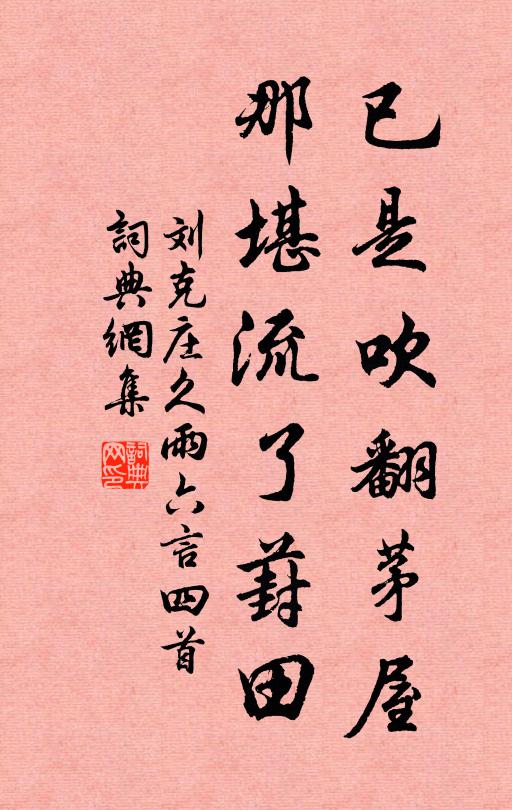 已是吹翻茅屋
那堪流了葑田
刘克庄久雨六言四首
詞典網集
詞典
网印